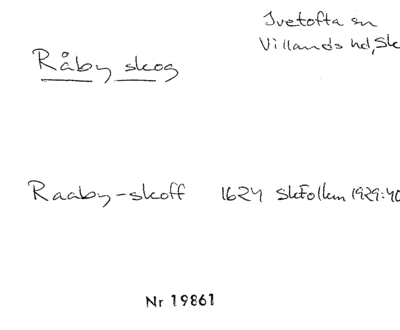 Ivetofta sn
Villands hd, Sk
Råby skog
Raaby-skoff 1624 SkFolkm 1929:40
Nr 19861